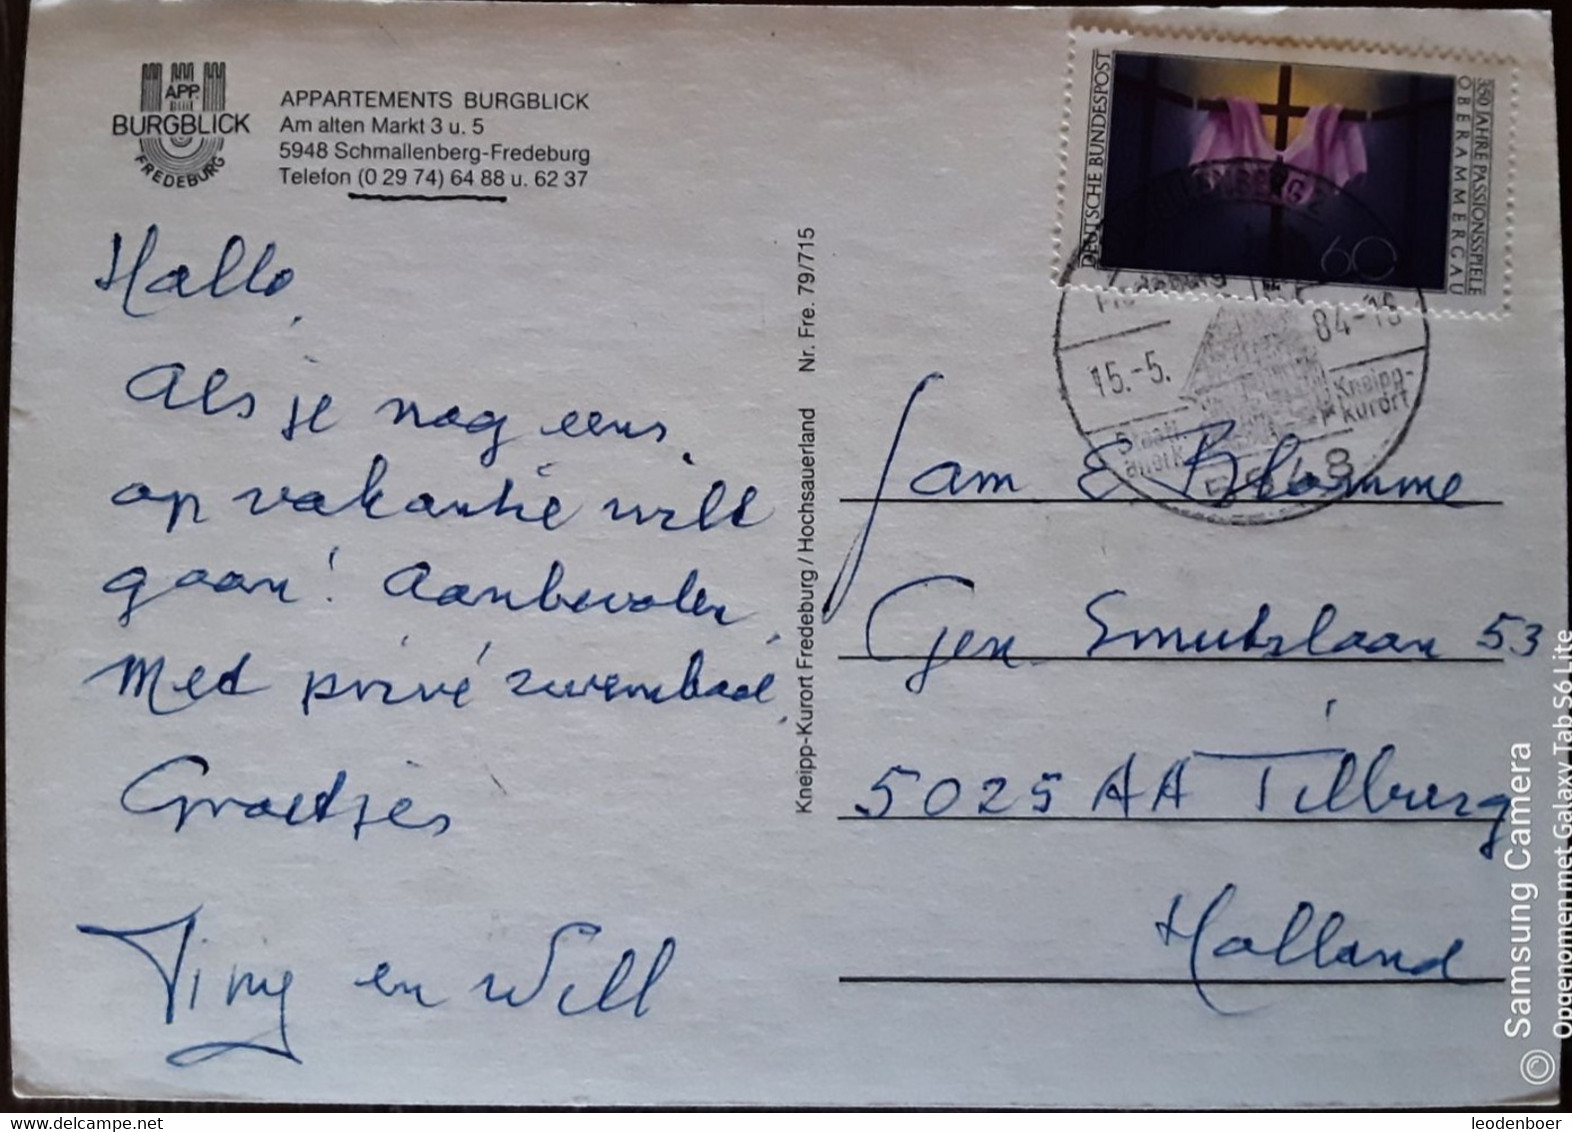 APP.
BURGBLICK
FREDEBURG
APPARTEMENTS BURGBLICK
Am alten Markt 3 u. 5
5948 Schmallenberg-Fredeburg
Telefon (0 29 74) 64 88 u. 62 37
Hallo,
Als je nog eens
op vakantie wilt
gaan! Aanbevolen,
Met privé zwembad,
Groetjes
Tiny en Will
Kneipp-Kurort Fredeburg / Hochsauerland Nr. Fre. 79/715
DEUTSCHE BUNDESPOST
350 JAHRE PASSIONSSPIELE
OBERAMMERGAU
60
Fredeburg
15.-5. 84-15
Kneipp-
Kurort
Staatl.
anerk.
5948
Fam E Blomme
Gen Smutslaan 53
5025 AA Tilburg
Holland
Samsung Camera
Opgenomen met Galaxy Tab S6 Lite
leodenboer